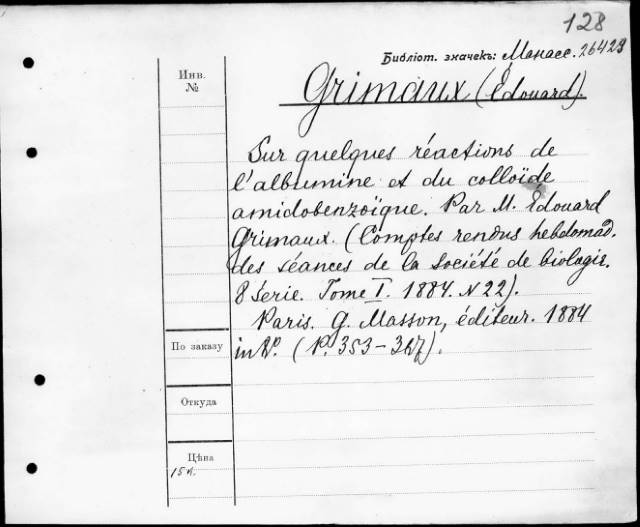 128
Библіот. значекъ: Манасс. 26423
Инв.
№
Grimaux (Édouard).
Sur quelques réactions de
l'albumine et du colloïde
amidobenzoïque. Par M. Édouard
Grimaux. (Comptes rendus hebdomad.
des séances de la Société de biologie.
8 Série. Tome I. 1884. N 22).
Paris. G. Masson, éditeur. 1884
По заказу
in 8º. (P. 353-367).
Откуда
Цѣна
15 к.